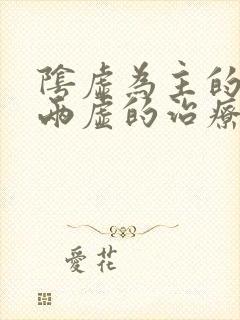 陰虛為主的
兩虛的治療
愛花